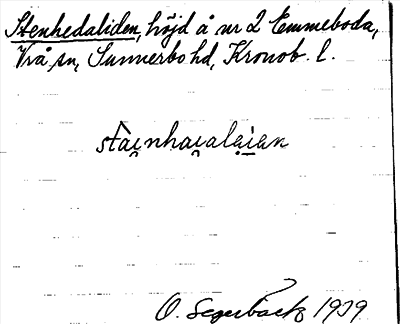 Stenhedaliden, höjd å nr 2 Emmeboda,
Vrå sn, Sunnerbo hd, Kronob. l.
O. Segerbäck 1939